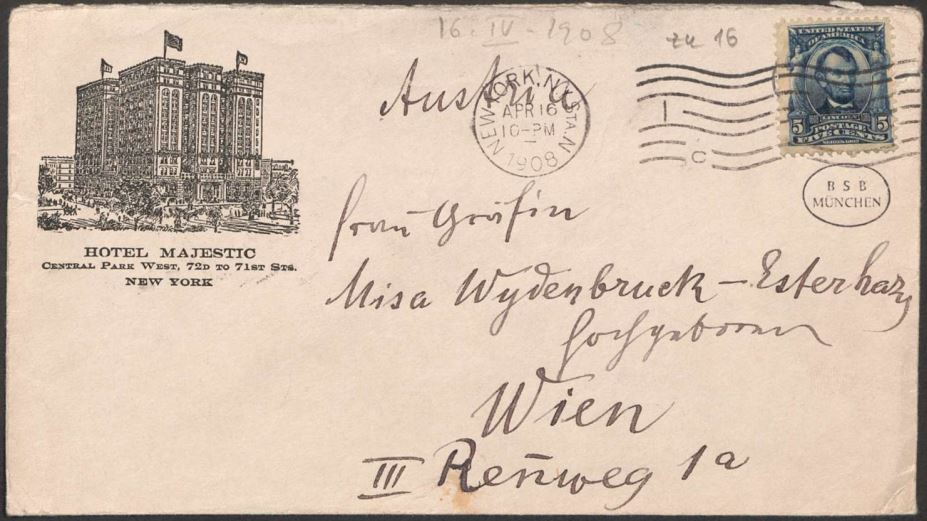 16. IV - 1908
zu 16
UNITED STATES
OF AMERICA
LINCOLN
5 POSTAGE 5
FIVE CENTS
Austria
NEW YORK, N.Y. STA. N
APR 16
10-PM
1908
1
C
B S B
MÜNCHEN
HOTEL MAJESTIC
CENTRAL PARK WEST, 72D TO 71ST STS.
NEW YORK
Frau Gräfin
Misa Wydenbruck-Esterhazy
Hochgeboren
Wien
III Reñweg 1a